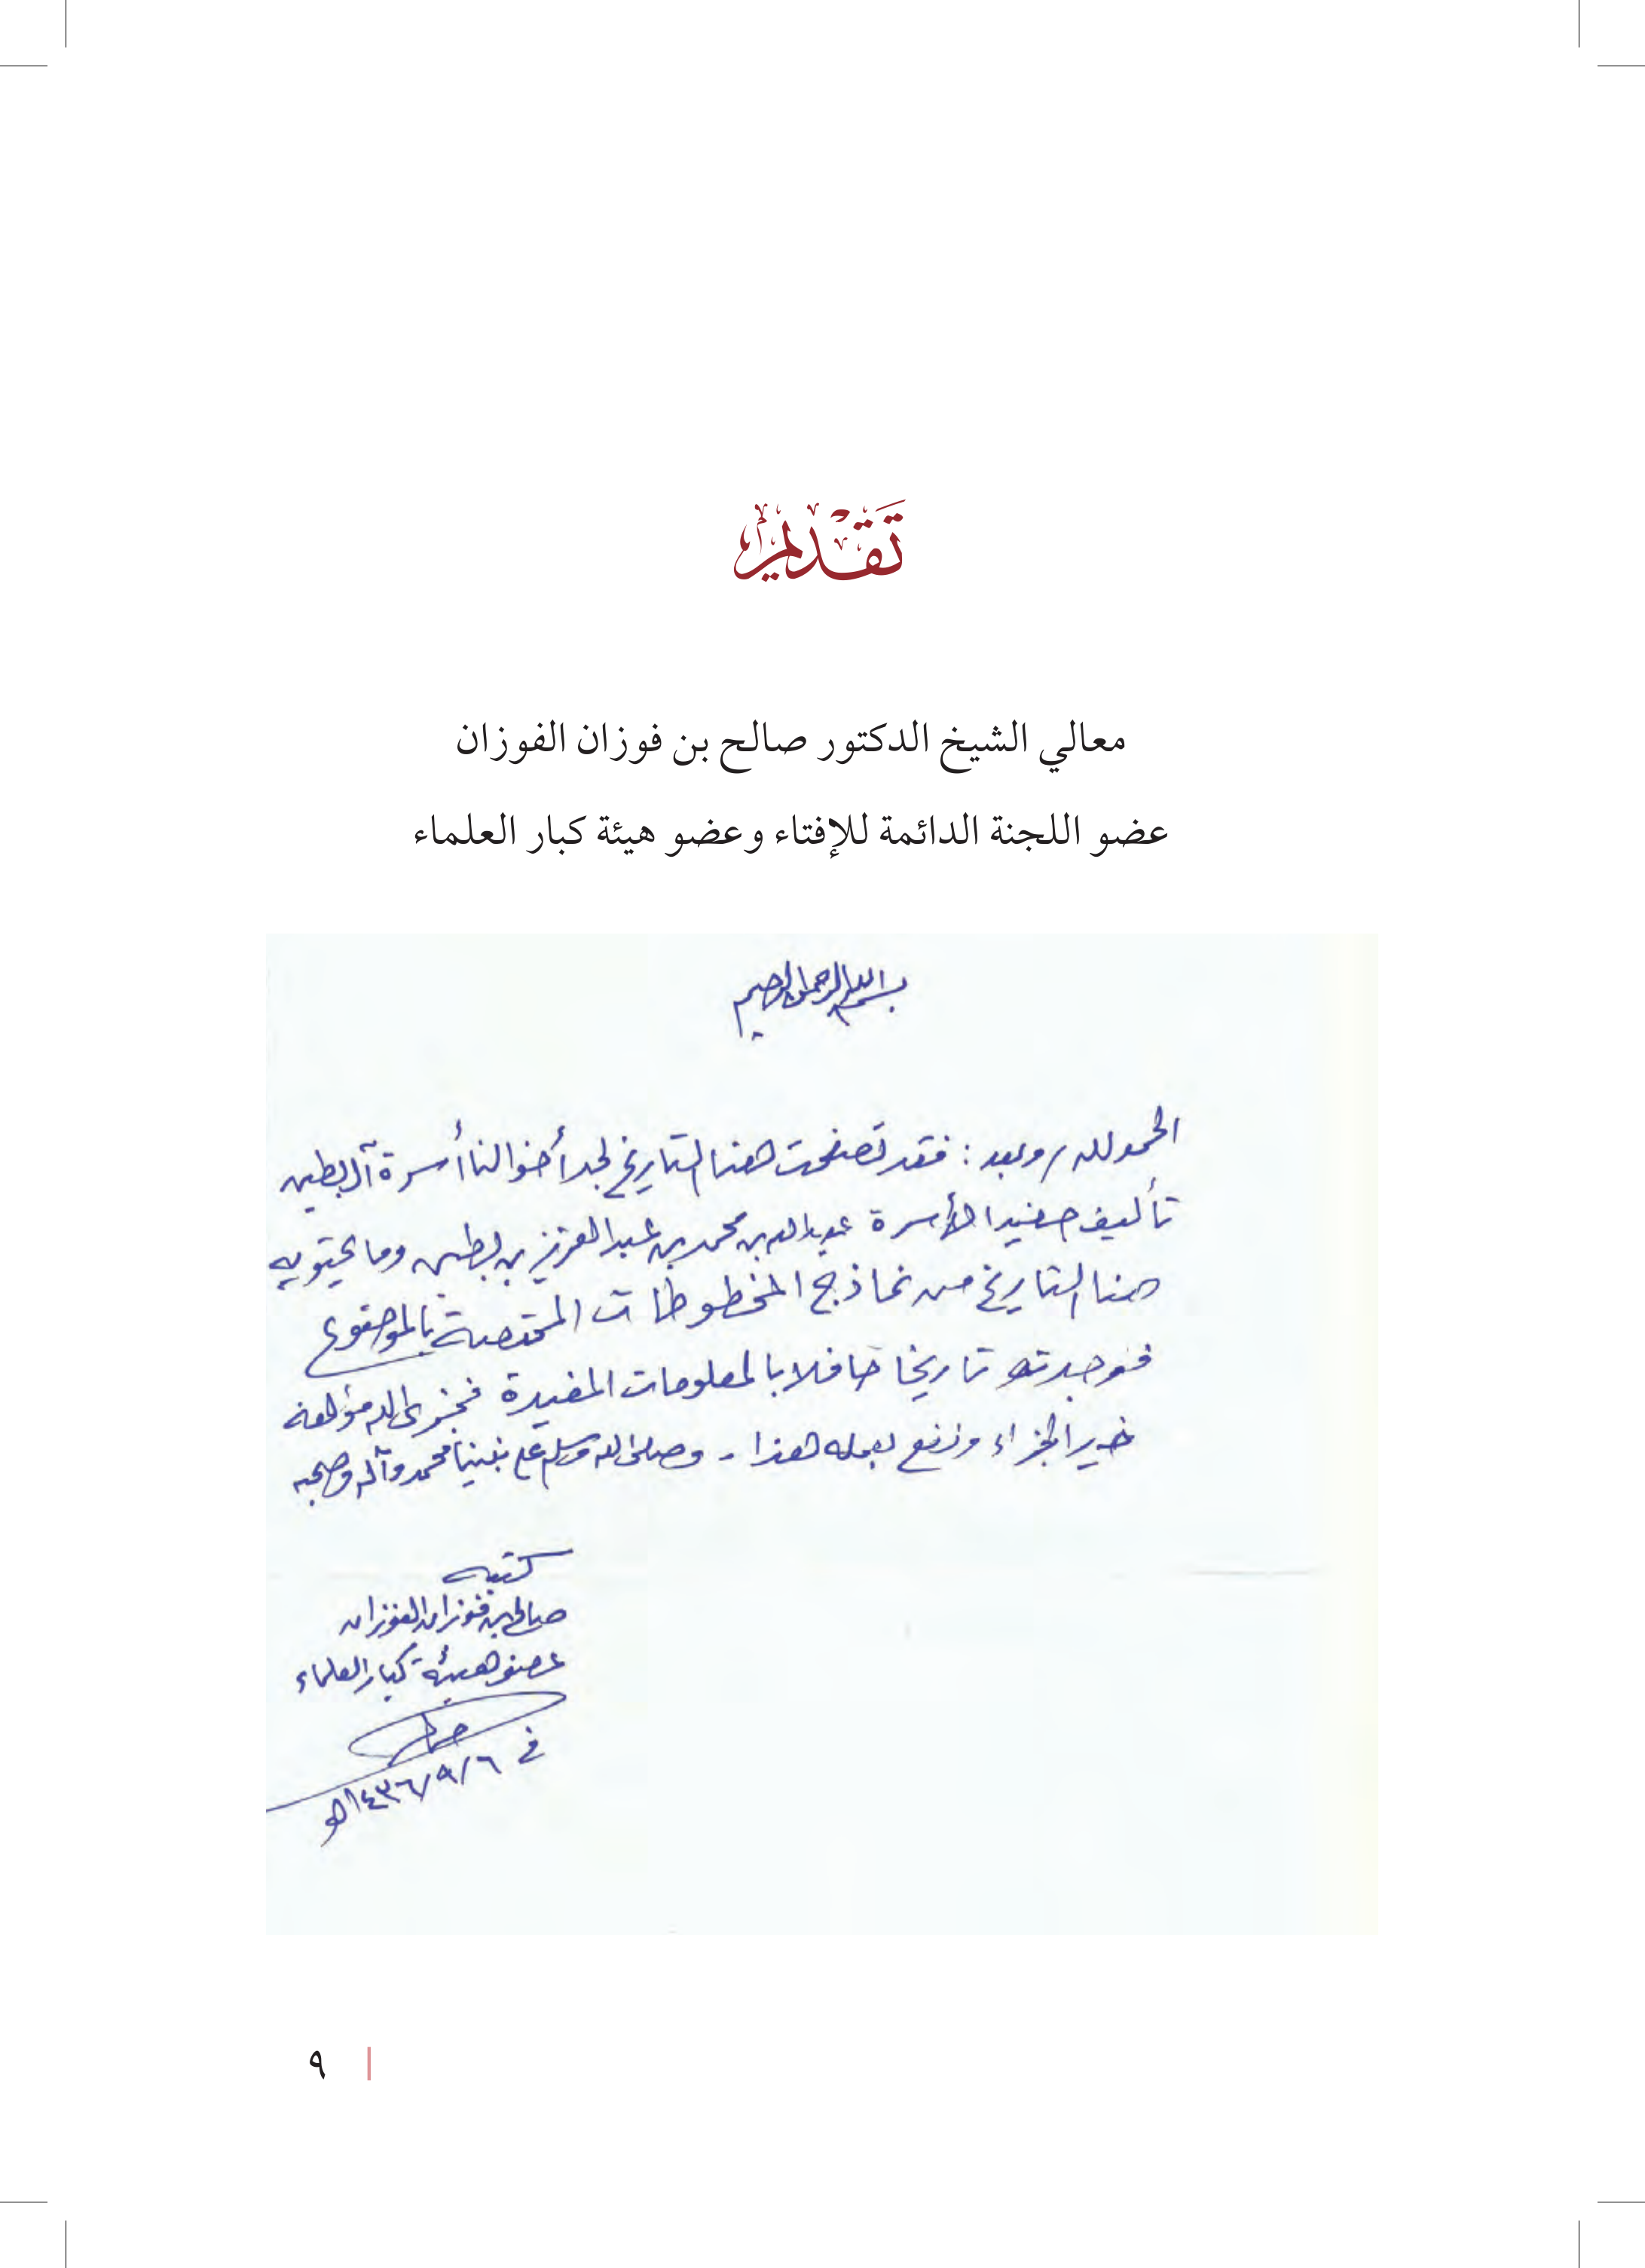 تَقْدِيم
معالي الشيخ الدكتور صالح بن فوزان الفوزان
عضو اللجنة الدائمة للإفتاء وعضو هيئة كبار العلماء
بسم الله الرحمن الرحيم
الحمد لله وبعد : فقد تصفحت هذا التاريخ لجد أخوالنا أسرة آل بطين
تأليف حفيد الأسرة عبد الله بن محمد بن عبد العزيز بن بطين وما يحتويه
هذا التاريخ من نماذج المخطوطات المختصة بالموضوع
فوجدته تاريخا حافلا بالمعلومات المفيدة فجزى الله مؤلفه
خير الجزاء ونفع بعمله هذا - وصلى الله وسلم على نبينا محمد وآله وصحبه
كتبه
صالح بن فوزان الفوزان
عضو هيئة كبار العلماء
في ١٤٣٦/٩/٦هـ
٩